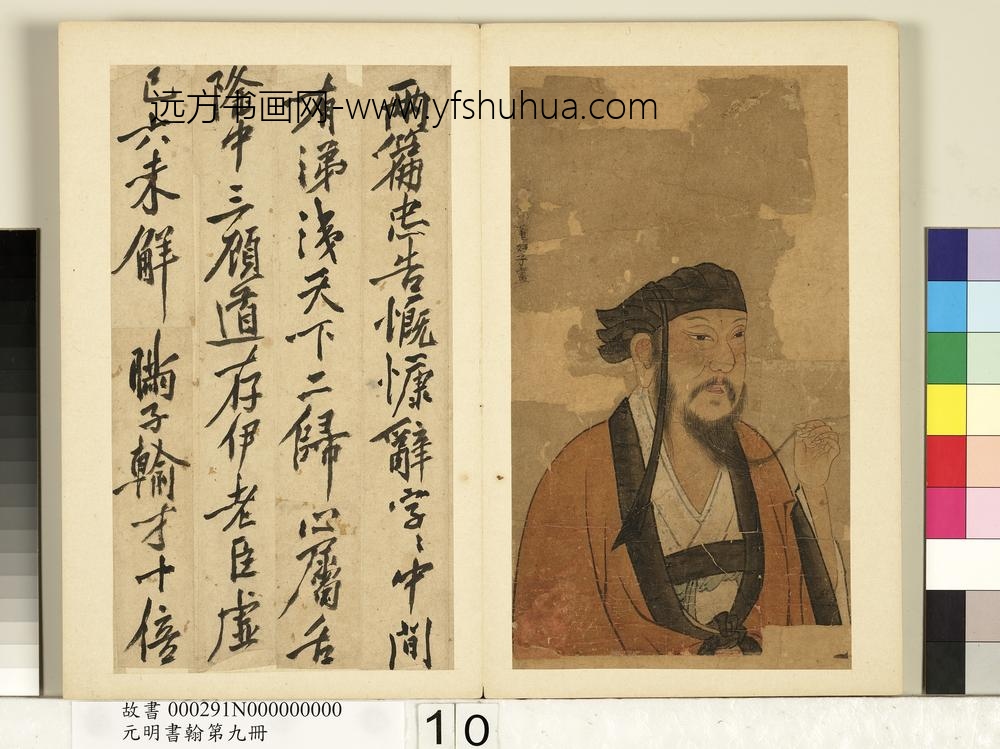 远方书画网-www.yfshuhua.com
兩篇忠告慨慷辭字〻中間
有涕淺天下二歸心屬
隆中三顧道存伊老臣虛
已六未解瞞子輸才十倍
故書 000291N000000000
元明書翰第九冊
10